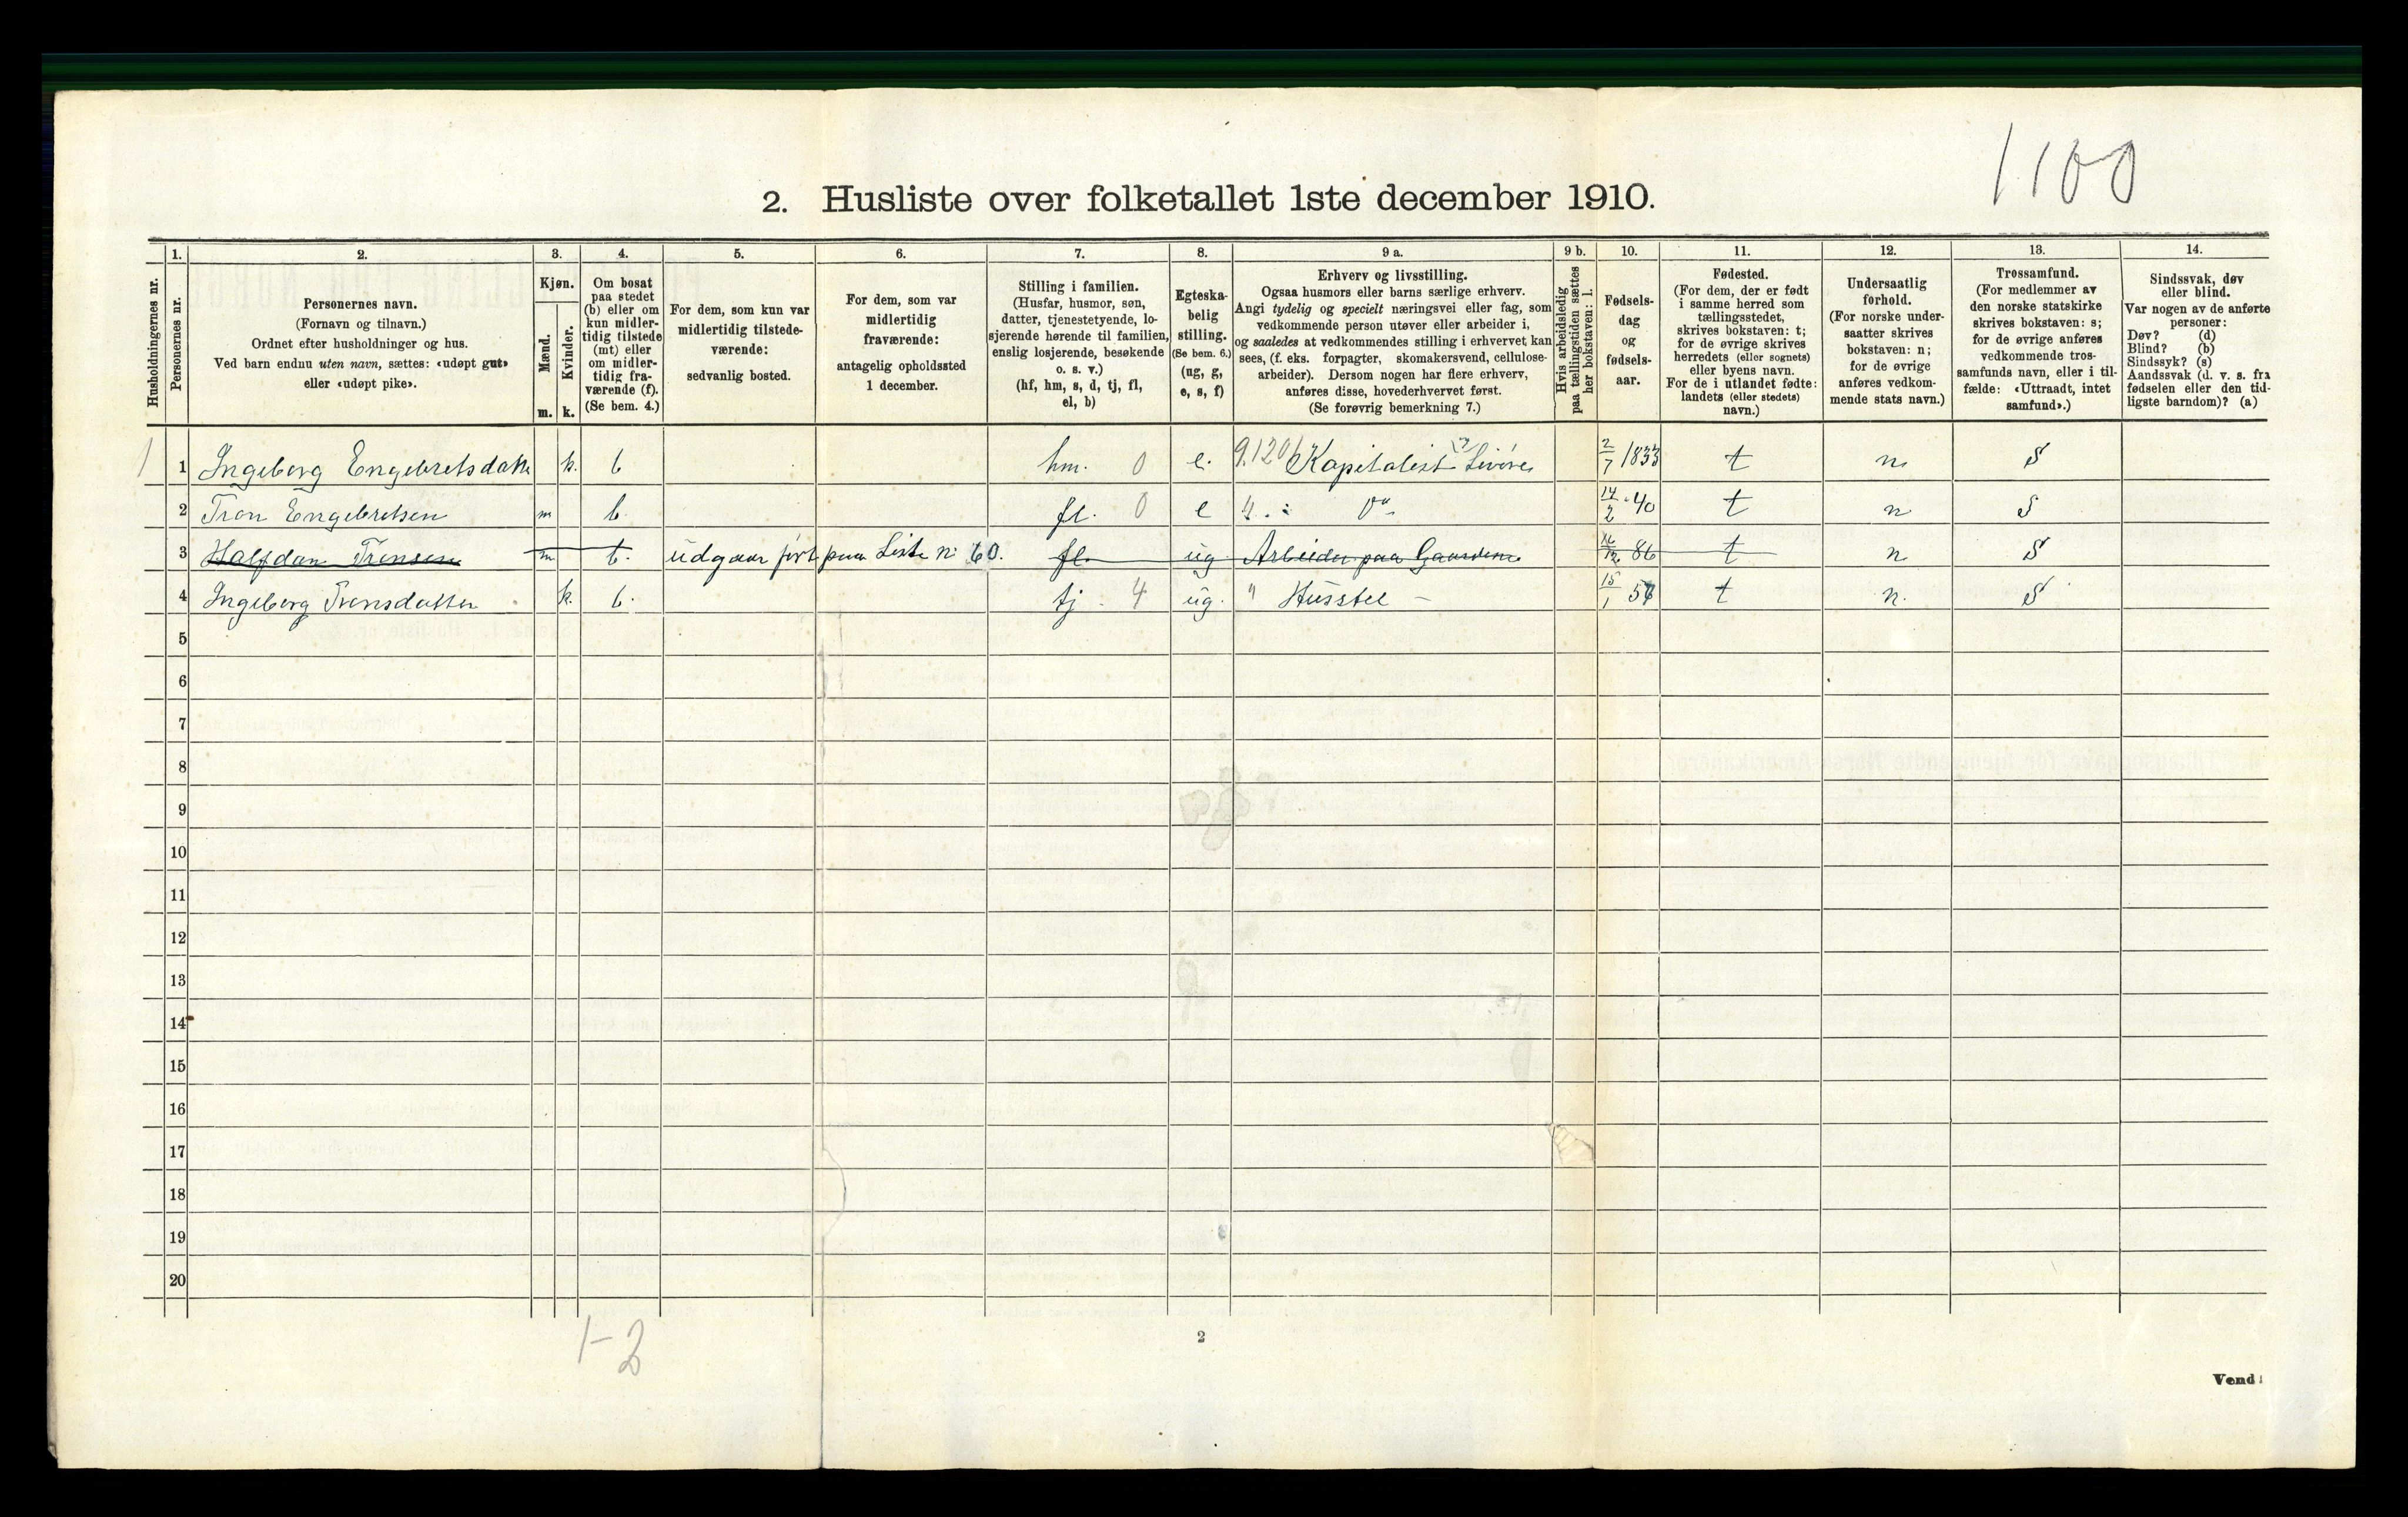 1100
2. Husliste over folketallet 1ste december 1910.
Husholdningernes nr.
1.
Personernes nr.
2.
Personernes navn.
(Fornavn og tilnavn.)
Ordnet efter husholdninger og hus.
Ved barn endnu uten navn, sættes: «udøpt gut»
eller «udøpt pike».
3.
Kjøn.
Mænd.
m.
Kvinder.
k.
4.
Om bosat
paa stedet
(b) eller om
kun midler-
tidig tilstede
(mt) eller
om midler-
tidig fra-
værende (f).
(Se bem. 4.)
5.
For dem, som kun var
midlertidig tilstede-
værende:
sedvanlig bosted.
6.
For dem, som var
midlertidig
fraværende:
antagelig opholdssted
1 december.
7.
Stilling i familien.
(Husfar, husmor, søn,
datter, tjenestetyende, lo-
sjerende hørende til familien,
enslig losjerende, besøkende
o. s. v.)
(hf, hm, s, d, tj, fl,
el, b)
8.
Egteska-
belig
stilling.
(Se bem. 6.)
(ug, g,
e, s, f)
9 a.
Erhverv og livsstilling.
Ogsaa husmors eller barns særlige erhverv.
Angi tydelig og specielt næringsvei eller fag, som
vedkommende person utøver eller arbeider i,
og saaledes at vedkommendes stilling i erhvervet kan
sees, (f. eks. forpagter, skomakersvend, cellulose-
arbeider). Dersom nogen har flere erhverv,
anføres disse, hovederhvervet først.
(Se forøvrig bemerkning 7.)
9 b.
Hvis arbeidsledig
paa tællingstiden sættes
her bokstaven: l.
10.
Fødsels-
dag
og
fødsels-
aar.
11.
Fødested.
(For dem, der er født
i samme herred som
tællingsstedet,
skrives bokstaven: t;
for de øvrige skrives
herredets (eller sognets)
eller byens navn.
For de i utlandet fødte:
landets (eller stedets)
navn.)
12.
Undersaatlig
forhold.
(For norske under-
saatter skrives
bokstaven: n;
for de øvrige
anføres vedkom-
mende stats navn.)
13.
Trossamfund.
(For medlemmer av
den norske statskirke
skrives bokstaven: s;
for de øvrige anføres
vedkommende tros-
samfunds navn, eller i til-
fælde: «Uttraadt, intet
samfund».)
14.
Sindssvak, døv
eller blind.
Var nogen av de anførte
personer:
Døv? (d)
Blind? (b)
Sindssyk? (s)
Aandssvak (d. v. s. fra
fødselen eller den tid-
ligste barndom)? (a)
1 1 Ingeborg Engebretsdatte k. b hm. 0 e. 9.120 Kapitalist 2/7 1833 t n s
2 Tron Engebretsen m b. fl. 0 e 14/2 40 t n s
3 Halfdan Tronsen m t. udgaar ført paa Liste n: 60. fl. ug. Arbeider paa Gaarden 86 t n s
4 Ingeborg Tronsdatter k. b. tj. 4 ug. " Husstel - 15/1 t n. s
5
6
7
8
9
10
11
12
13
14
15
16
17
18
19
20
1-2
2
Vend!